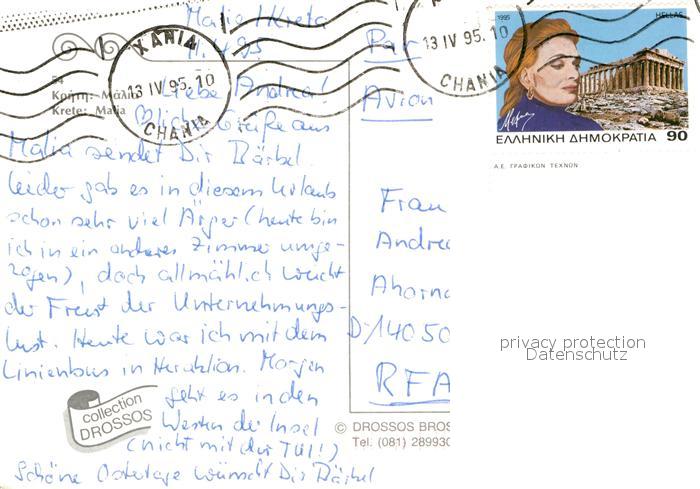 Malia / Kreta
11.4.95
Liebe Andrea!
Grüße aus
Malia sendet Dir Bärbel.
Leider gab es in diesem Urlaub
schon sehr viel Ärger (heute bin
ich in ein anderes Zimmer umge-
zogen), doch allmählich weicht
der Frust der Unternehmungs-
lust. Heute war ich mit dem
Linienbus in Heraklion. Morgen
geht es in den
Westen der Insel
(nicht mit der TUI!)
Schöne Ostertage wünscht Dir Bärbel
54
Κρήτη: Μάλια
Krete: Malia
ΧΑΝΙΑ
13 IV 95. 10
CHANIA
collection
DROSSOS
Par
Avion
Frau
Andrea
Ahorn
D-14050
RFA
© DROSSOS BROS
Tel. (081) 28993
13 IV 95. 10
CHANIA
1995
HELLAS
ΕΛΛΗΝΙΚΗ ΔΗΜΟΚΡΑΤΙΑ 90
Α.Ε. ΓΡΑΦΙΚΩΝ ΤΕΧΝΩΝ
privacy protection
Datenschutz